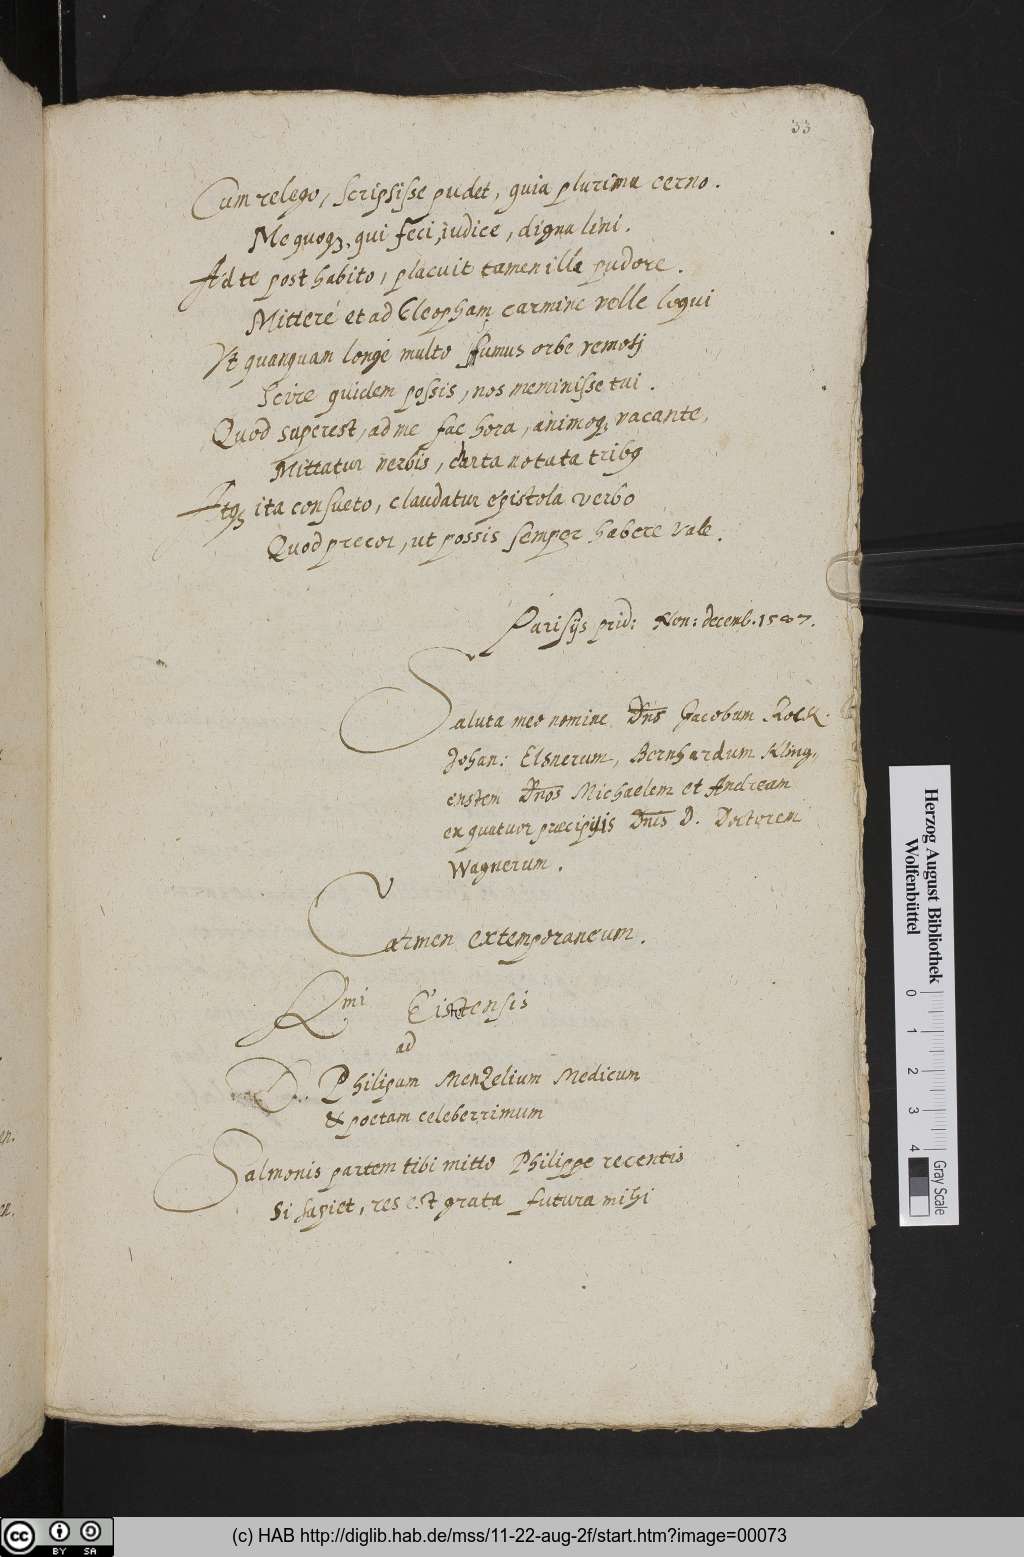 33
Cum relego, scripsisse pudet, quia plurima cerno.
Me quoq3, qui feci, iudice, digna lini.
Ad te post habito, placuit tamen illa pudore.
Mittere et ad Cleopham carmine velle loqui
Vt quanquam longe multo sumus orbe remoti
Scire quidem possis, nos meminisse tui.
Quod superest, ad me fac hora, animoq3 vacante,
Mittatur verbis, carta notata tribq
Atq3 ita consueto, claudatur epistola verbo
Quod precor, ut possis semper habere vale.
Parisijs prid: Non: decemb. 1587.
Saluta meo nomine Dns Jacobum Rock.
Johan: Elsnerum, Bernhardum Kling,
enstem Dnos Michaelem et Andream
ex quatuor præcipijs Dnis D. Doctorem
Wagnerum.
Carmen extemporaneum.
Rmi Eistetensis
ad
D. Philipum Menzelium Medicum
& poetam celeberrimum
Salmonis partem tibi mitto Philippe recentis
Si sapiet, res est grata futura mihi
Herzog August Bibliothek
Wolfenbüttel
0 1 2 3 4
Gray Scale
cc BY SA
(c) HAB http://diglib.hab.de/mss/11-22-aug-2f/start.htm?image=00073